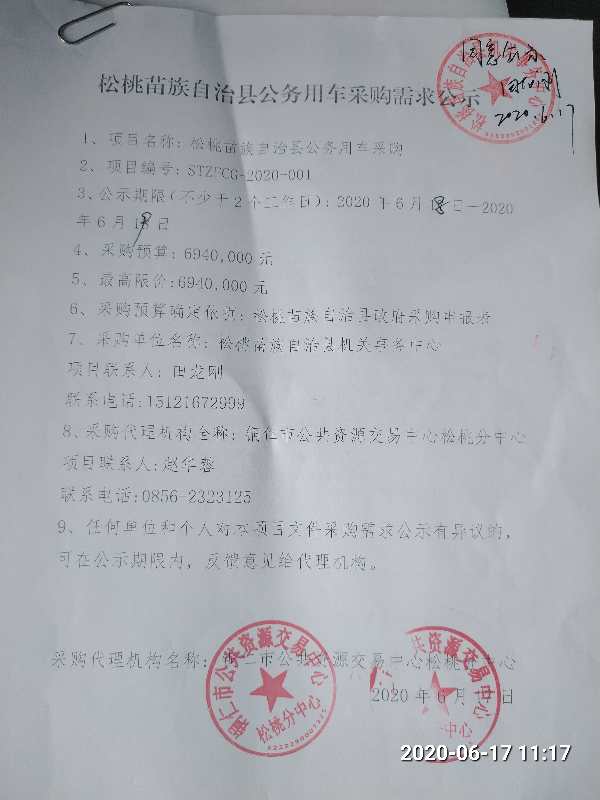 同意公示
2020.6.17
松桃苗族自治县公务用车采购需求公示
1、项目名称:松桃苗族自治县公务用车采购
2、项目编号:STZFCG-2020-001
3、公示期限(不少于2个工作日):2020年6月18日—2020
年6月19日
4、采购预算:6940,000元
5、最高限价:6940,000元
6、采购预算确定依据:松桃苗族自治县政府采购申报表
7、采购单位名称:松桃苗族自治县机关事务中心
项目联系人:田 刚
联系电话:15121672999
8、采购代理机构全称:铜仁市公共资源交易中心松桃分中心
项目联系人:赵华蓉
联系电话:0856-2323125
9、任何单位和个人对本项目文件采购需求公示有异议的,
可在公示期限内,反馈意见给代理机构。
采购代理机构名称:铜仁市公共资源交易中心松桃分中心
2020年6月17日
铜仁市公共资源交易中心
松桃分中心
2020-06-17 11:17